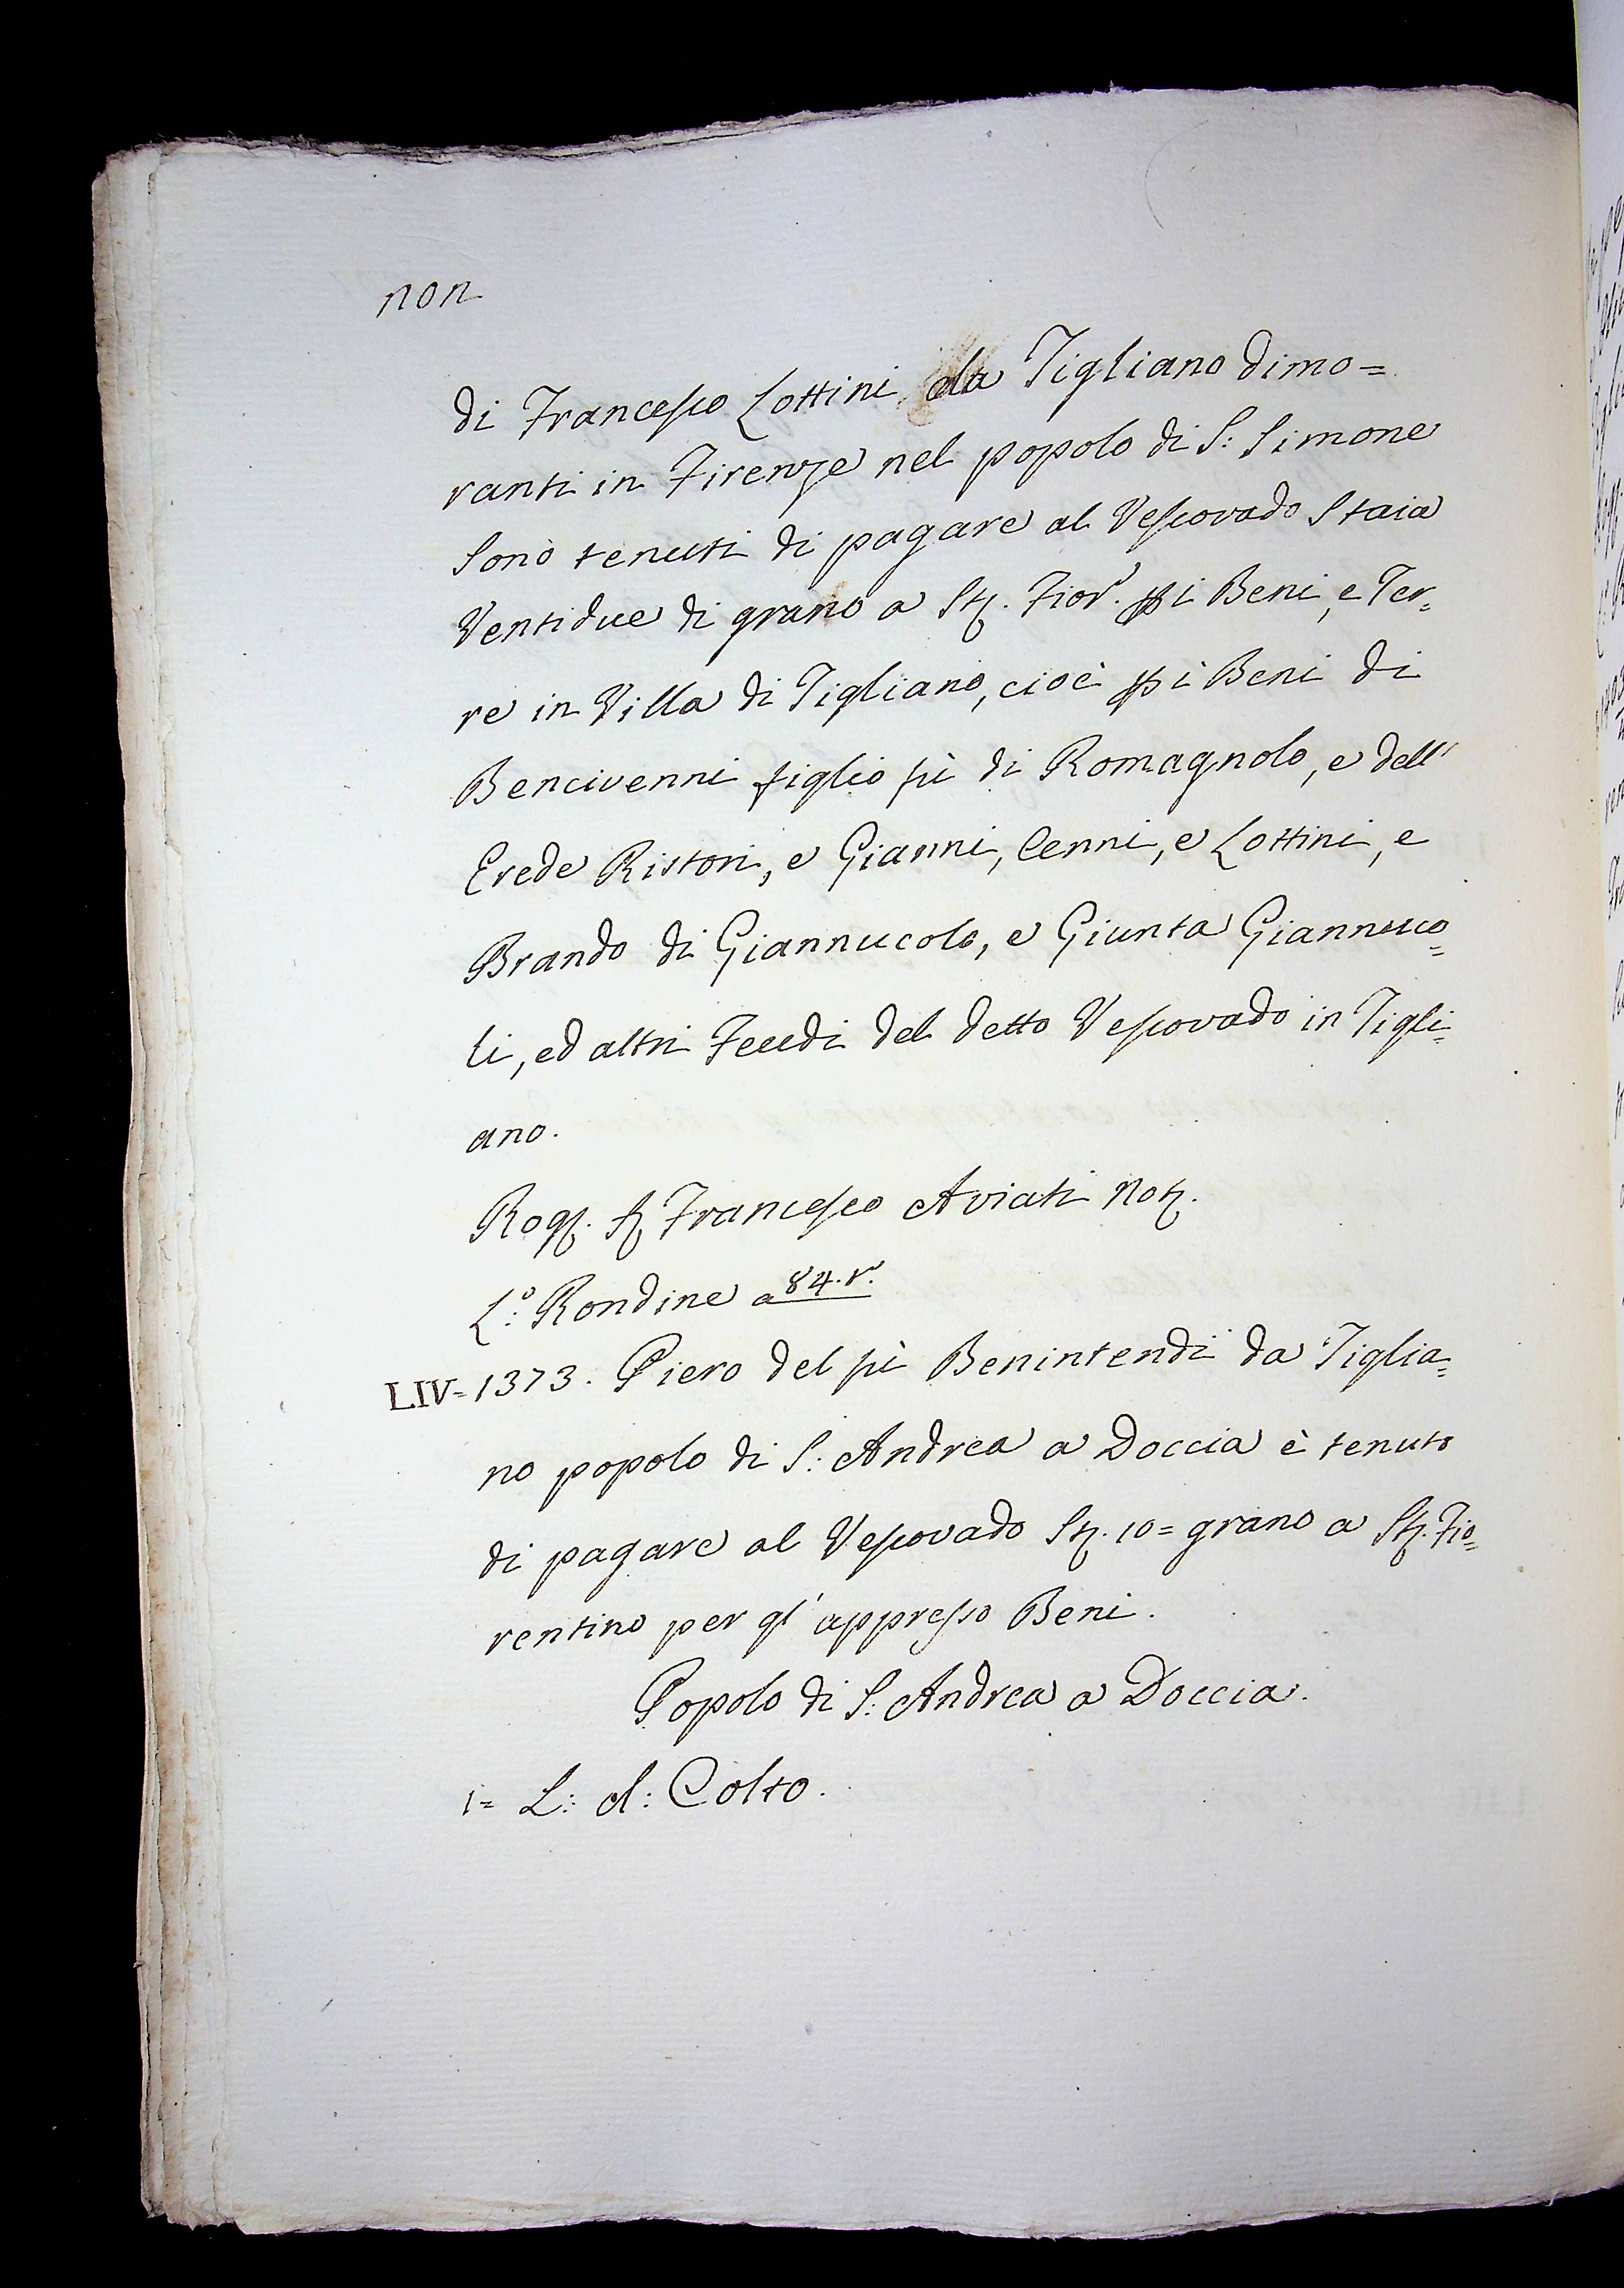 non
di Francesco Lottini da Tigliano dimo=
ranti in Firenze nel popolo di S: Simone
sono tenuti di pagare al Vescovado Staia
Ventidue di grano a St. Fior. p i Beni, e Ter=
re in Villa di Tigliano, cioè p i Beni di
Bencivenni figlio fù di Romagnolo, e dell'
Erede Ristori, e Gianni, Cenni, e Lottini, e
Brando di Giannucolo, e Giunta Giannuco=
li, ed altri Feudi del detto Vescovado in Tigli=
ano.
Rog. Francesco Aviati Not.
L:o Rondine a 84. r.
LIV= 1373. Piero del fù Benintendi da Tiglia=
no popolo di S: Andrea a Doccia è tenuto
di pagare al Vescovado St. 10= grano a St. Fio=
rentino per gl' appresso Beni.
Popolo di S: Andrea a Doccia.
1= L: d: Colto.